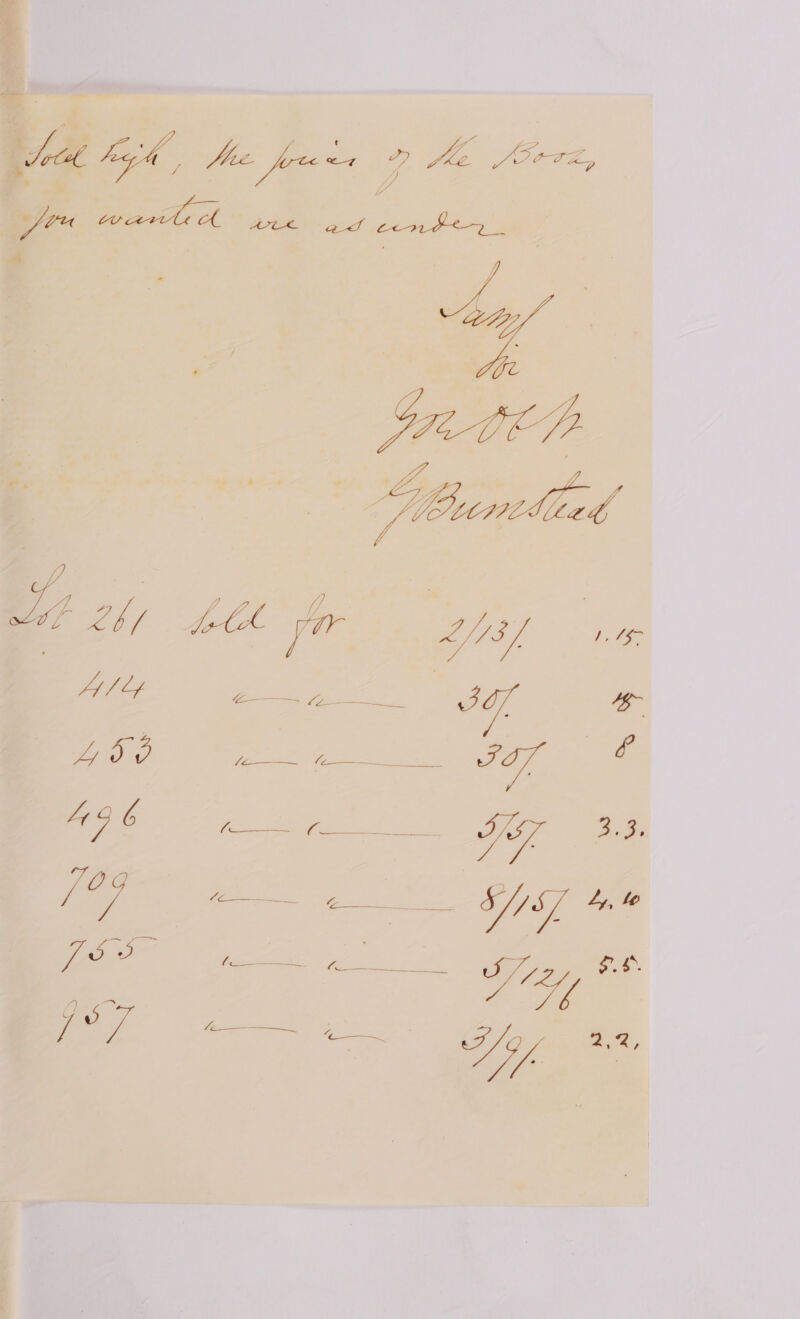 Sold high, the prices of the Books
you wanted are as under
I am S
for
G Bumstead
Lot 261 sold for 2/13/. 1.15.
414 " " 30/. 15
453 " " 30/. 8
496 " " 5/5/. 3.3.
709 " " 8/15/. 4.10
755 " " 5/12/6 5.5.
957 " " 3/9/. 2.2,